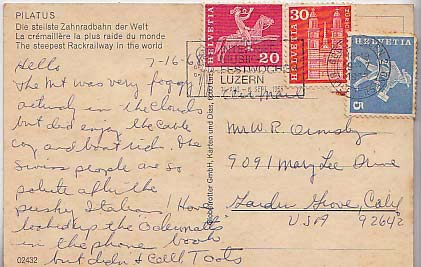 PILATUS
Die steilste Zahnradbahn der Welt
La crémaillère la plus raide du monde
The steepest Rackrailway in the world
Hello 7-16-6
The Mt was very foggy
actual in the clouds
but did enjoy the cable
car and boat ride. The
Swiss people are so
polite after the
pushy Italians! How
looked up the "Odermatts"
in the phone book
but didn't call Toots
02432
HELVETIA
20
HELVETIA
30
HELVETIA
5
LUZERN
Air Mail
Mr W. R. Ormsby
9091 Mary Lee Drive
Garden Grove, Calif
USA 92642